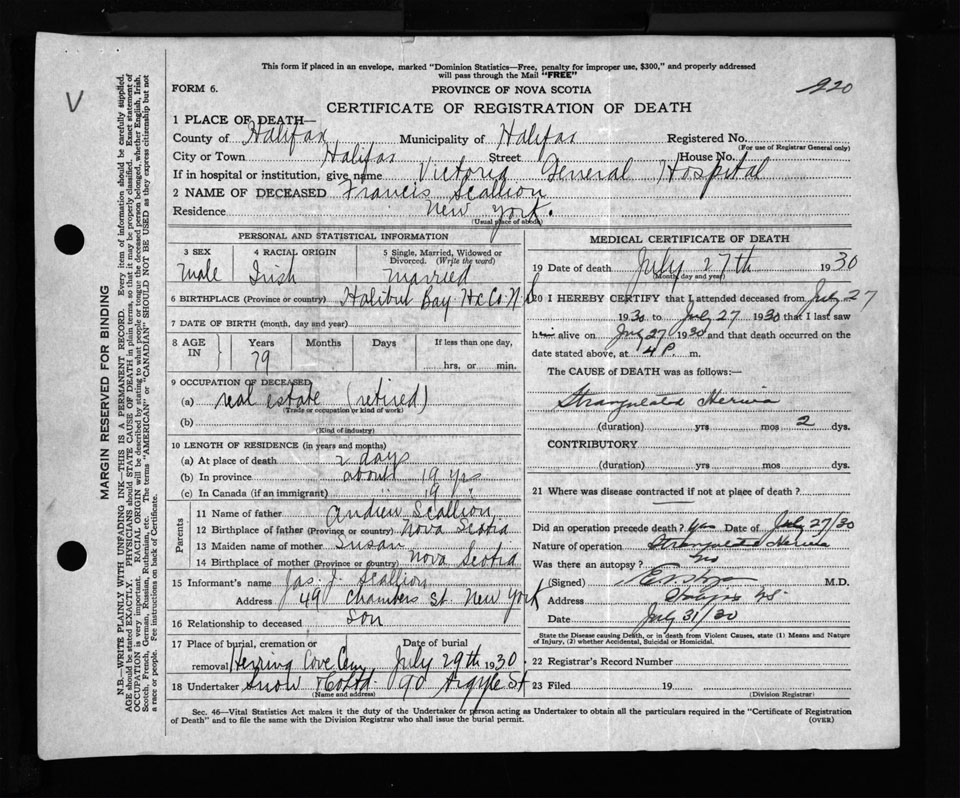 This form if placed in an envelope, marked "Dominion Statistics—Free, penalty for improper use, $300," and properly addressed
will pass through the Mail "FREE"
FORM 6.
PROVINCE OF NOVA SCOTIA
220
V
CERTIFICATE OF REGISTRATION OF DEATH
1 PLACE OF DEATH—
County of Halifax Municipality of Halifax Registered No.
(For use of Registrar General only)
City or Town Halifax Street House No.
If in hospital or institution, give name Victoria General Hospital
2 NAME OF DECEASED Francis Scallion
Residence New York.
(Usual place of abode)
PERSONAL AND STATISTICAL INFORMATION
3 SEX 4 RACIAL ORIGIN 5 Single, Married, Widowed or
Divorced. (Write the word)
Male Irish Married
6 BIRTHPLACE (Province or country) Halibut Bay Hx Co. N.S
7 DATE OF BIRTH (month, day and year)
8 AGE Years Months Days If less than one day,
IN 79 hrs. or min.
9 OCCUPATION OF DECEASED
(a) real estate (retired)
(Trade or occupation or kind of work)
(b)
(Kind of industry)
10 LENGTH OF RESIDENCE (in years and months)
(a) At place of death 2 days
(b) In province about 19 yrs
(c) In Canada (if an immigrant) 19 "
Parents
11 Name of father Andrew Scallion
12 Birthplace of father (Province or country) Nova Scotia
13 Maiden name of mother Susan
14 Birthplace of mother (Province or country) Nova Scotia
15 Informant's name Jas. J. Scallion
Address 49 Chambers St. New York
16 Relationship to deceased Son
17 Place of burial, cremation or Date of burial
removal Herring Cove Cem July 29th 1930.
18 Undertaker Snow & Co Ltd. 90 Argyle St
(Name and address)
MEDICAL CERTIFICATE OF DEATH
19 Date of death July 27th 1930
(Month, day and year)
20 I HEREBY CERTIFY that I attended deceased from July 27
1930 to July 27 1930 that I last saw
him alive on July 27 1930 and that death occurred on the
date stated above, at 4 P. m.
The CAUSE of DEATH was as follows:—
Strangulated Hernia
(duration) yrs mos 2 dys.
CONTRIBUTORY
(duration) yrs mos dys.
21 Where was disease contracted if not at place of death?
Did an operation precede death? Yes Date of July 27/30
Nature of operation Strangulated Hernia
Was there an autopsy? No
(Signed) M.D.
Address Halifax NS.
Date July 31/30
State the Disease causing Death, or in death from Violent Causes, state (1) Means and Nature
of Injury, (2) whether Accidental, Suicidal or Homicidal.
22 Registrar's Record Number
23 Filed 19
(Division Registrar)
Sec. 46—Vital Statistics Act makes it the duty of the Undertaker or person acting as Undertaker to obtain all the particulars required in the "Certificate of Registration
of Death" and to file the same with the Division Registrar who shall issue the burial permit. (OVER)
MARGIN RESERVED FOR BINDING
N.B.—WRITE PLAINLY WITH UNFADING INK—THIS IS A PERMANENT RECORD. Every item of information should be carefully supplied.
AGE should be stated EXACTLY. PHYSICIANS should STATE CAUSE OF DEATH in plain terms, so that it may be properly classified. Exact statement of
OCCUPATION is very important. RACIAL ORIGIN will be described by stating to what people or tongue the deceased person belonged, whether English, Irish,
Scotch, French, German, Russian, Ruthenian, etc. The terms "AMERICAN" or "CANADIAN" SHOULD NOT BE USED as they express citizenship but not
a race or people. See instructions on back of Certificate.